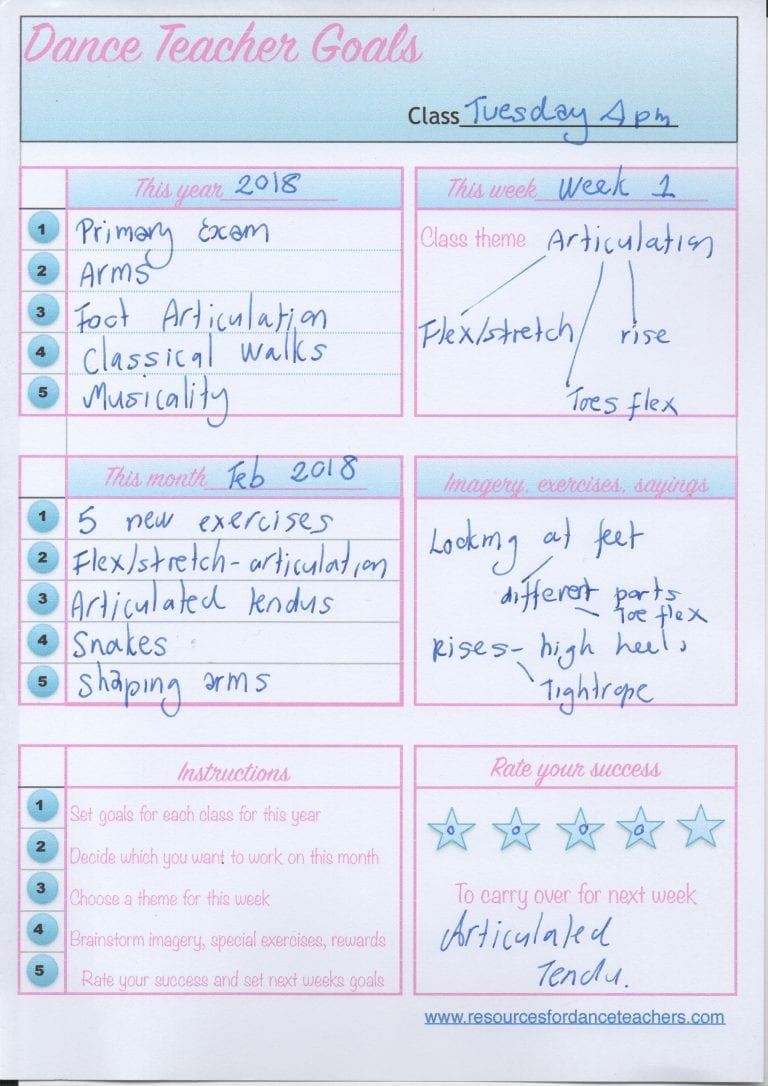 Dance Teacher Goals
Class Tuesday 4pm
This year 2018
1 Primary Exam
2 Arms
3 Foot Articulation
4 Classical Walks
5 Musicality
This week Week 1
Class theme Articulation
Flex/stretch rise
Toes flex
This month Feb 2018
1 5 new exercises
2 Flex/stretch-articulation
3 Articulated tendus
4 Snakes
5 Shaping arms
Imagery, exercises, sayings
Looking at feet
different parts
Toe flex
Rises- high heels
Tightrope
Instructions
1 Set goals for each class for this year
2 Decide which you want to work on this month
3 Choose a theme for this week
4 Brainstorm imagery, special exercises, rewards
5 Rate your success and set next weeks goals
Rate your success
To carry over for next week
Articulated
Tendu.
www.resourcesfordanceteachers.com